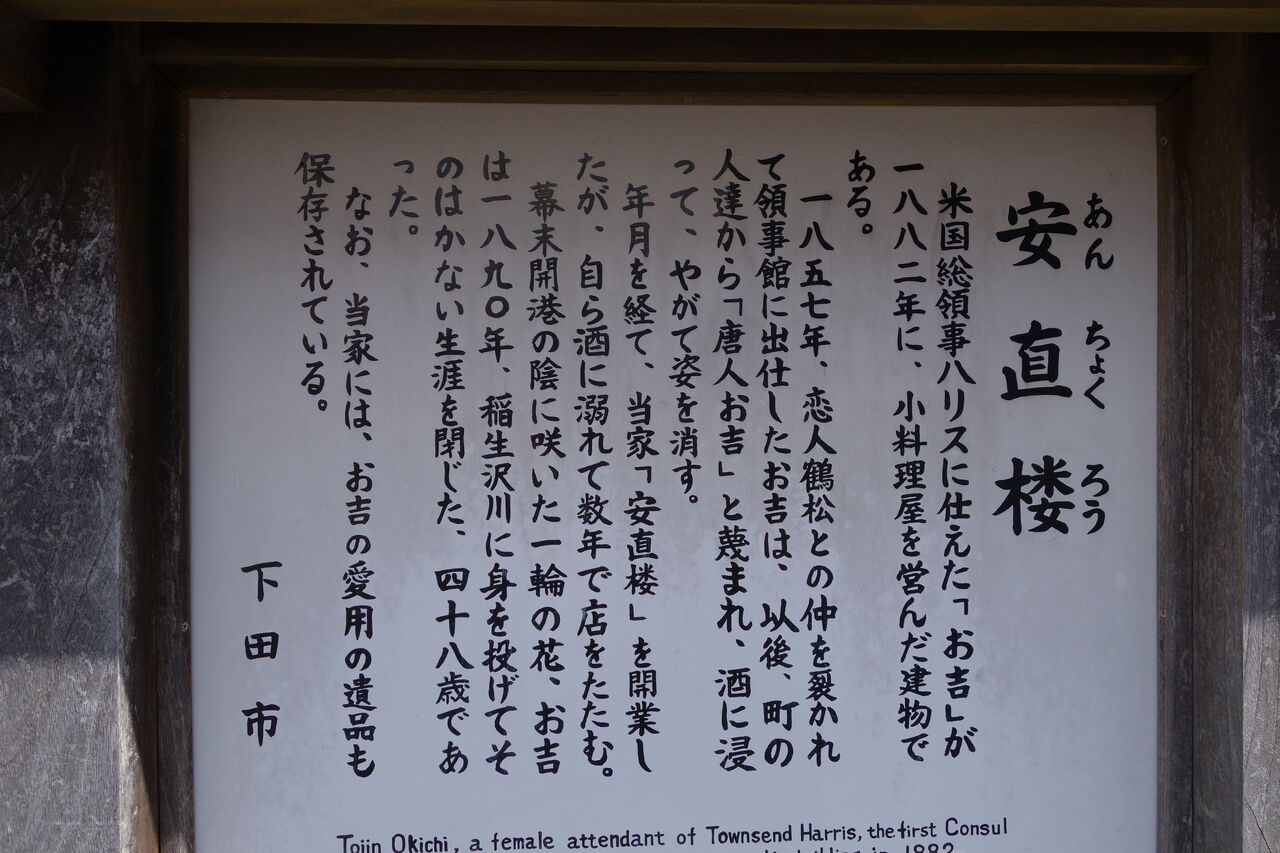 安直楼
あん ちょく ろう
米国総領事ハリスに仕えた「お吉」が
一八八二年に、小料理屋を営んだ建物で
ある。
一八五七年、恋人鶴松との仲を裂かれ
て領事館に出仕したお吉は、以後、町の
人達から「唐人お吉」と蔑まれ、酒に浸
って、やがて姿を消す。
年月を経て、当家「安直楼」を開業し
たが、自ら酒に溺れて数年で店をたたむ。
幕末開港の陰に咲いた一輪の花、お吉
は一八九〇年、稲生沢川に身を投げてそ
のはかない生涯を閉じた、四十八歳であ
った。
なお、当家には、お吉の愛用の遺品も
保存されている。
下田市
Tojin Okichi, a female attendant of Townsend Harris, the first Consul
in 1882